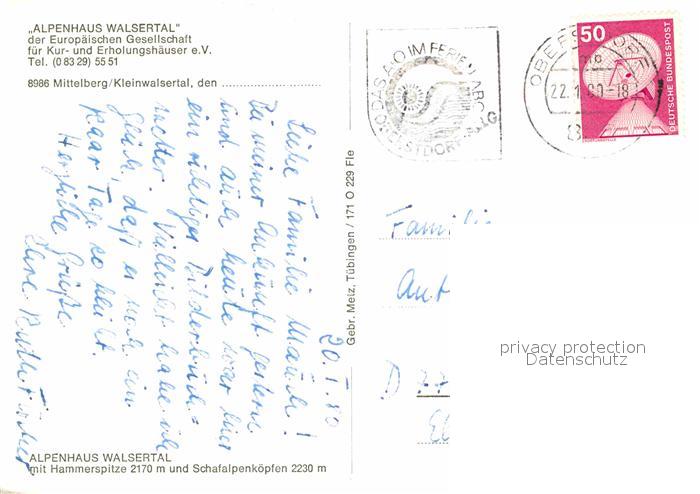 „ALPENHAUS WALSERTAL"
der Europäischen Gesellschaft
für Kur- und Erholungshäuser e.V.
Tel. (0 83 29) 55 51
8986 Mittelberg/Kleinwalsertal, den
20.I.80
Liebe Familie Mauch!
Zu meiner Ankunft gestern
und auch heute war hier
ein richtiges Bilderbuch=
wetter. Vielleicht habe ich
Glück, daß es noch ein
paar Tage so bleibt.
Herzliche Grüße
Ihre Ruth
ALPENHAUS WALSERTAL
mit Hammerspitze 2170 m und Schafalpenköpfen 2230 m
Gebr. Metz, Tübingen / 171 O 229 Fle
DAS A O IM FERIEN ABC
OBERSTDORF ALLG
22.1.80-18
50
DEUTSCHE BUNDESPOST
Famili
Ant
D 77
El
privacy protection
Datenschutz